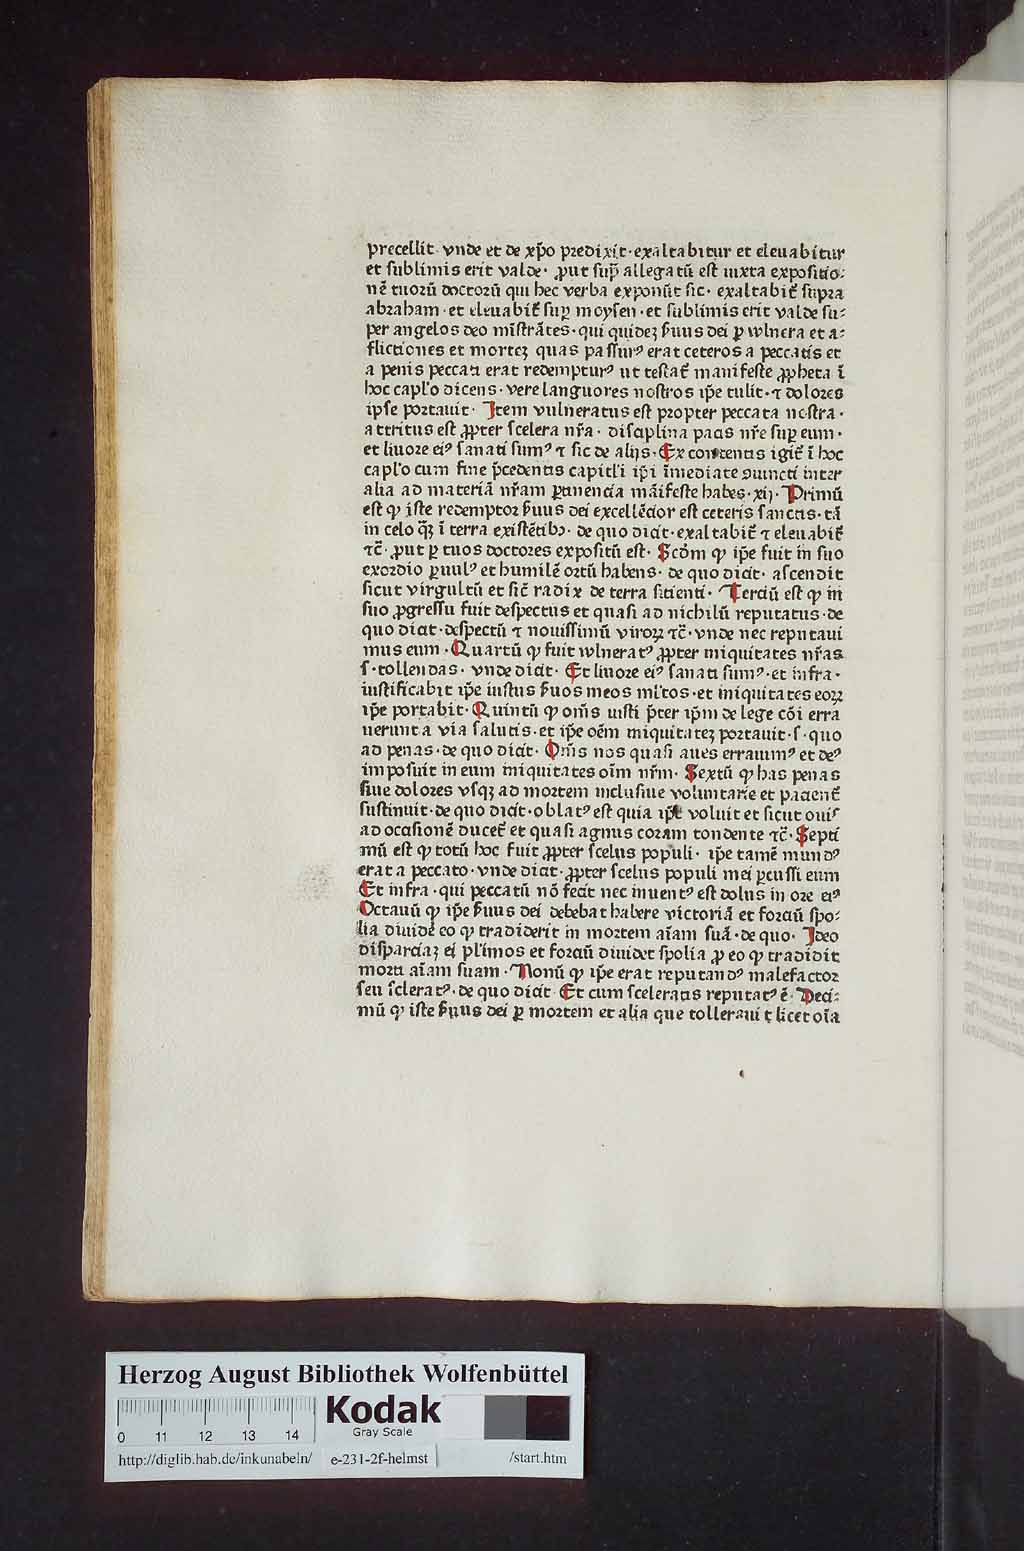 precellit· vnde et de xp̄o predixit·exaltabitur et eleuabitur
et sublimis erit valde· ꝓut sup̄ allegatū est iuxta expositio⸗
nē tuorū doctorū qui hec verba exponūt sic· exaltabit̄ supra
abraham·et eleuabit̄ suꝑ moysen·et sublimis erit valde su⸗
per angelos deo mīstrātes·qui quideꝫ ẜuus dei ꝑ wlnera et a⸗
flictiones et morteꝫ quas passurꝰ erat ceteros a peccatis et
a penis peccati erat redempturꝰ ut testat̄ manifeste ꝓpheta ī
hoc capl'o dicens·vere languores nostros ip̄e tulit·⁊ dolores
ipse portauit· Item vulneratus est propter peccata nostra·
attritus est ꝓpter scelera nr̄a· disciplina pacis nr̄e suꝑ eum·
et liuore eiꝰ sanati sumꝰ ⁊ sic de alijs·Ex contentis igit̄ ī hoc
capl'o cum fine p̄cedentis capitl'i ip̄i īmediate ꝯiuncti inter
alia ad materiā nr̄am ꝑtinencia māifeste habes·xij· Primū
est ꝙ iste redemptor ẜuus dei excellēcior est ceteris sanctis·tā
in celo qͣꝫ ī terra existētibꝫ· de quo dicit·exaltabit̄ ⁊ eleuabit̄
⁊c̄· ꝓut ꝑ tuos doctores expositū est· Scd̄m ꝙ ip̄e fuit in suo
exordio ꝑuulꝰ et humilē ortū habens· de quo dicit· ascendit
sicut virgultū et sic̄ radix de terra sitienti· Terciū est ꝙ in
suo ꝓgressu fuit despectus et quasi ad nichilū reputatus·de
quo dicit·despectū ⁊ nouissimū viroꝝ ⁊c̄·vnde nec reputaui
mus eum·Quartū ꝙ fuit wlneratꝰ ꝓpter iniquitates nr̄as
s·tollendas· vnde dicit· Et liuore eiꝰ sanati sumꝰ·et infra·
iustificabit ip̄e iustus ẜuos meos ml'tos·et iniquitates eoꝝ
ip̄e portabit·Quintū ꝙ om̄s iusti p̄ter ip̄m de lege cōi erra
uerunt a via salutis·et ip̄e oēm iniquitateꝫ portauit·s·quo
ad penas·de quo dicit· Om̄s nos quasi aues errauimꝰ et deꝰ
imposuit in eum iniquitates oīm nr̄m· Sextū ꝙ has penas
siue dolores vsqꝫ ad mortem inclusiue voluntarie et pacient̄
sustinuit·de quo dicit·oblatꝰ est quia ip̄e voluit et sicut ouis
ad ocasionē ducet̄ et quasi agnus coram tondente ⁊c̄·Septi
mū est ꝙ totū hoc fuit ꝓpter scelus populi· ip̄e tamē mundꝰ
erat a peccato·vnde dicit·ꝓpter scelus populi mei ꝑcussi eum
Et infra·qui peccatū nō fecit nec inuentꝰ est dolus in ore eiꝰ
Octauū ꝙ ip̄e ẜuus dei debebat habere victoriā et forciū spo⸗
lia diuide̅ eo ꝙ tradiderit in mortem aīam suā·de quo· Ideo
disparciaꝫ ei pl'imos et forciū diuidet spolia ꝓ eo ꝙ tradidit
morti aīam suam·Nonū ꝙ ip̄e erat reputandꝰ malefactor
seu scleratꝰ·de quo dicit· Et cum sceleratis reputatꝰ ē· Deci⸗
mū ꝙ iste ẜuus dei ꝑ mortem et alia que tollerauit licet oīa
Herzog August Bibliothek Wolfenbüttel
Kodak
Gray Scale
0 11 12 13 14
http://diglib.hab.de/inkunabeln/ e-231-2f-helmst /start.htm